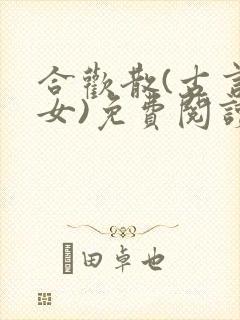 合歡散(古言
女)免費閱讀
田卓也